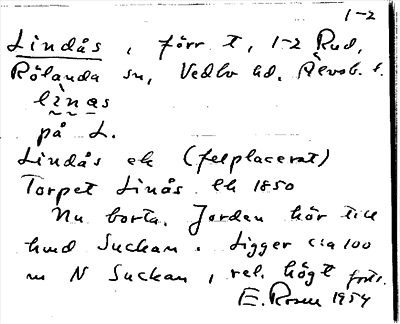 1-2
Lindås, förr t, 1-2 Rud,
Rölanda sn, Vedbo hd. Älvsb. l.
linas
på L.
Lindås ek (felplacerat)
Torpet Linås lk 1850
Nu borta. Jorden hör till
hmd Suckan. Ligger c:a 100
m N Suckan, rel. högt
E. Rosen 1954